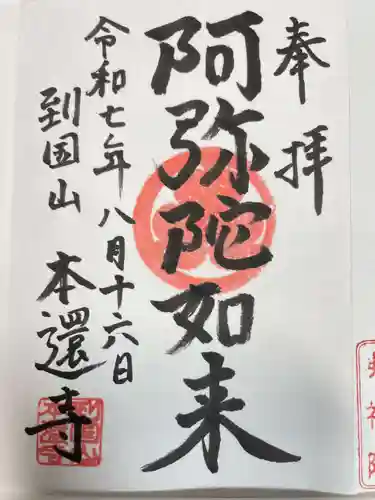 奉拝
阿弥陀如来
令和七年八月十六日
到国山 本還寺